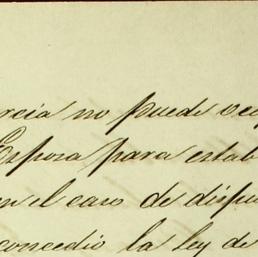 rcia no puede
Esposa para estab
n el caso de dispu
concedio la ley de